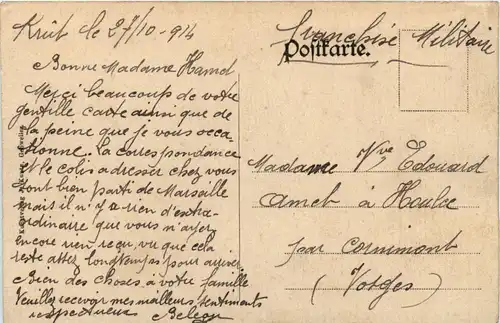 Krüt le 27/10-914
Bonne Madame Hamel
Merci beaucoup de votre
gentille carte ainsi que de
la peine que je vous occa-
sionne. La correspondance
et le colis adresser chez vous
sont bien parti de Marseille
mais il n'y a rien d'extra-
ordinaire que vous n'ayez
encore rien reçu, vu que cela
reste assez longtemps pour arriver
Bien des choses à votre famille
Veuillez recevoir mes meilleurs sentiments
respectueux
Franchise Militaire
Postkarte.
Madame Vve Edouard
à
par Cornimont
(Vosges)